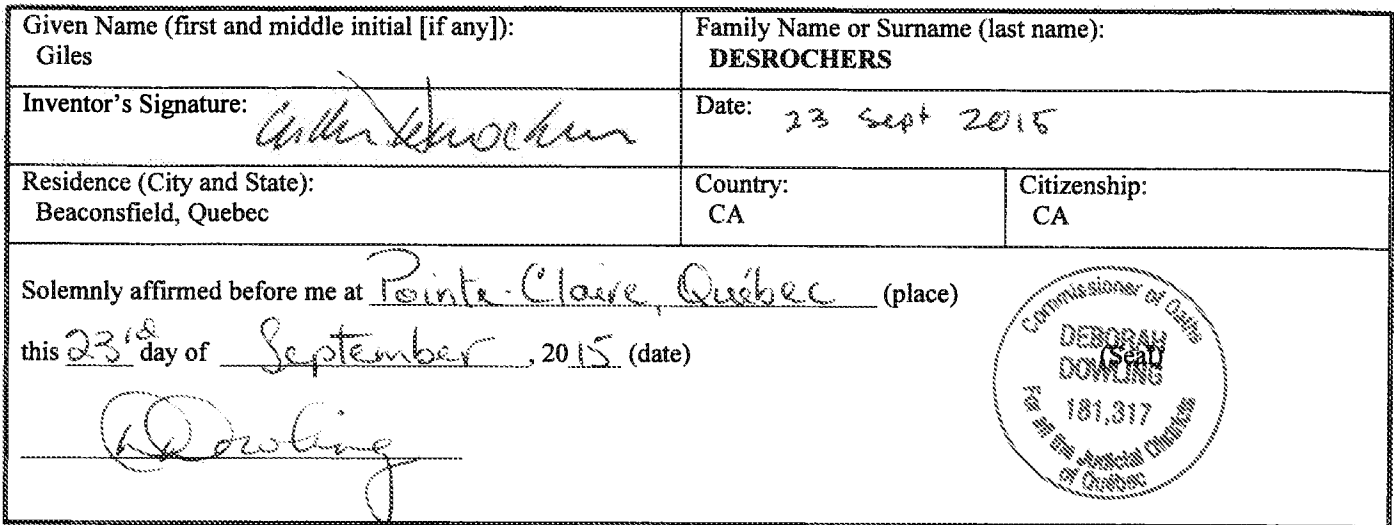 Given Name (first and middle initial [if any]):
Giles
Family Name or Surname (last name):
DESROCHERS
Inventor's Signature:
Date: 23 Sept 2015
Residence (City and State):
Beaconsfield, Quebec
Country:
CA
Citizenship:
CA
Solemnly affirmed before me at Pointe-Claire, Québec (place)
this 23rd day of September, 2015 (date)
DDowling
Commissioner of Oaths
DEBORAH
DOWLING
(Seal)
181,317
For all the Judicial Districts
of Québec